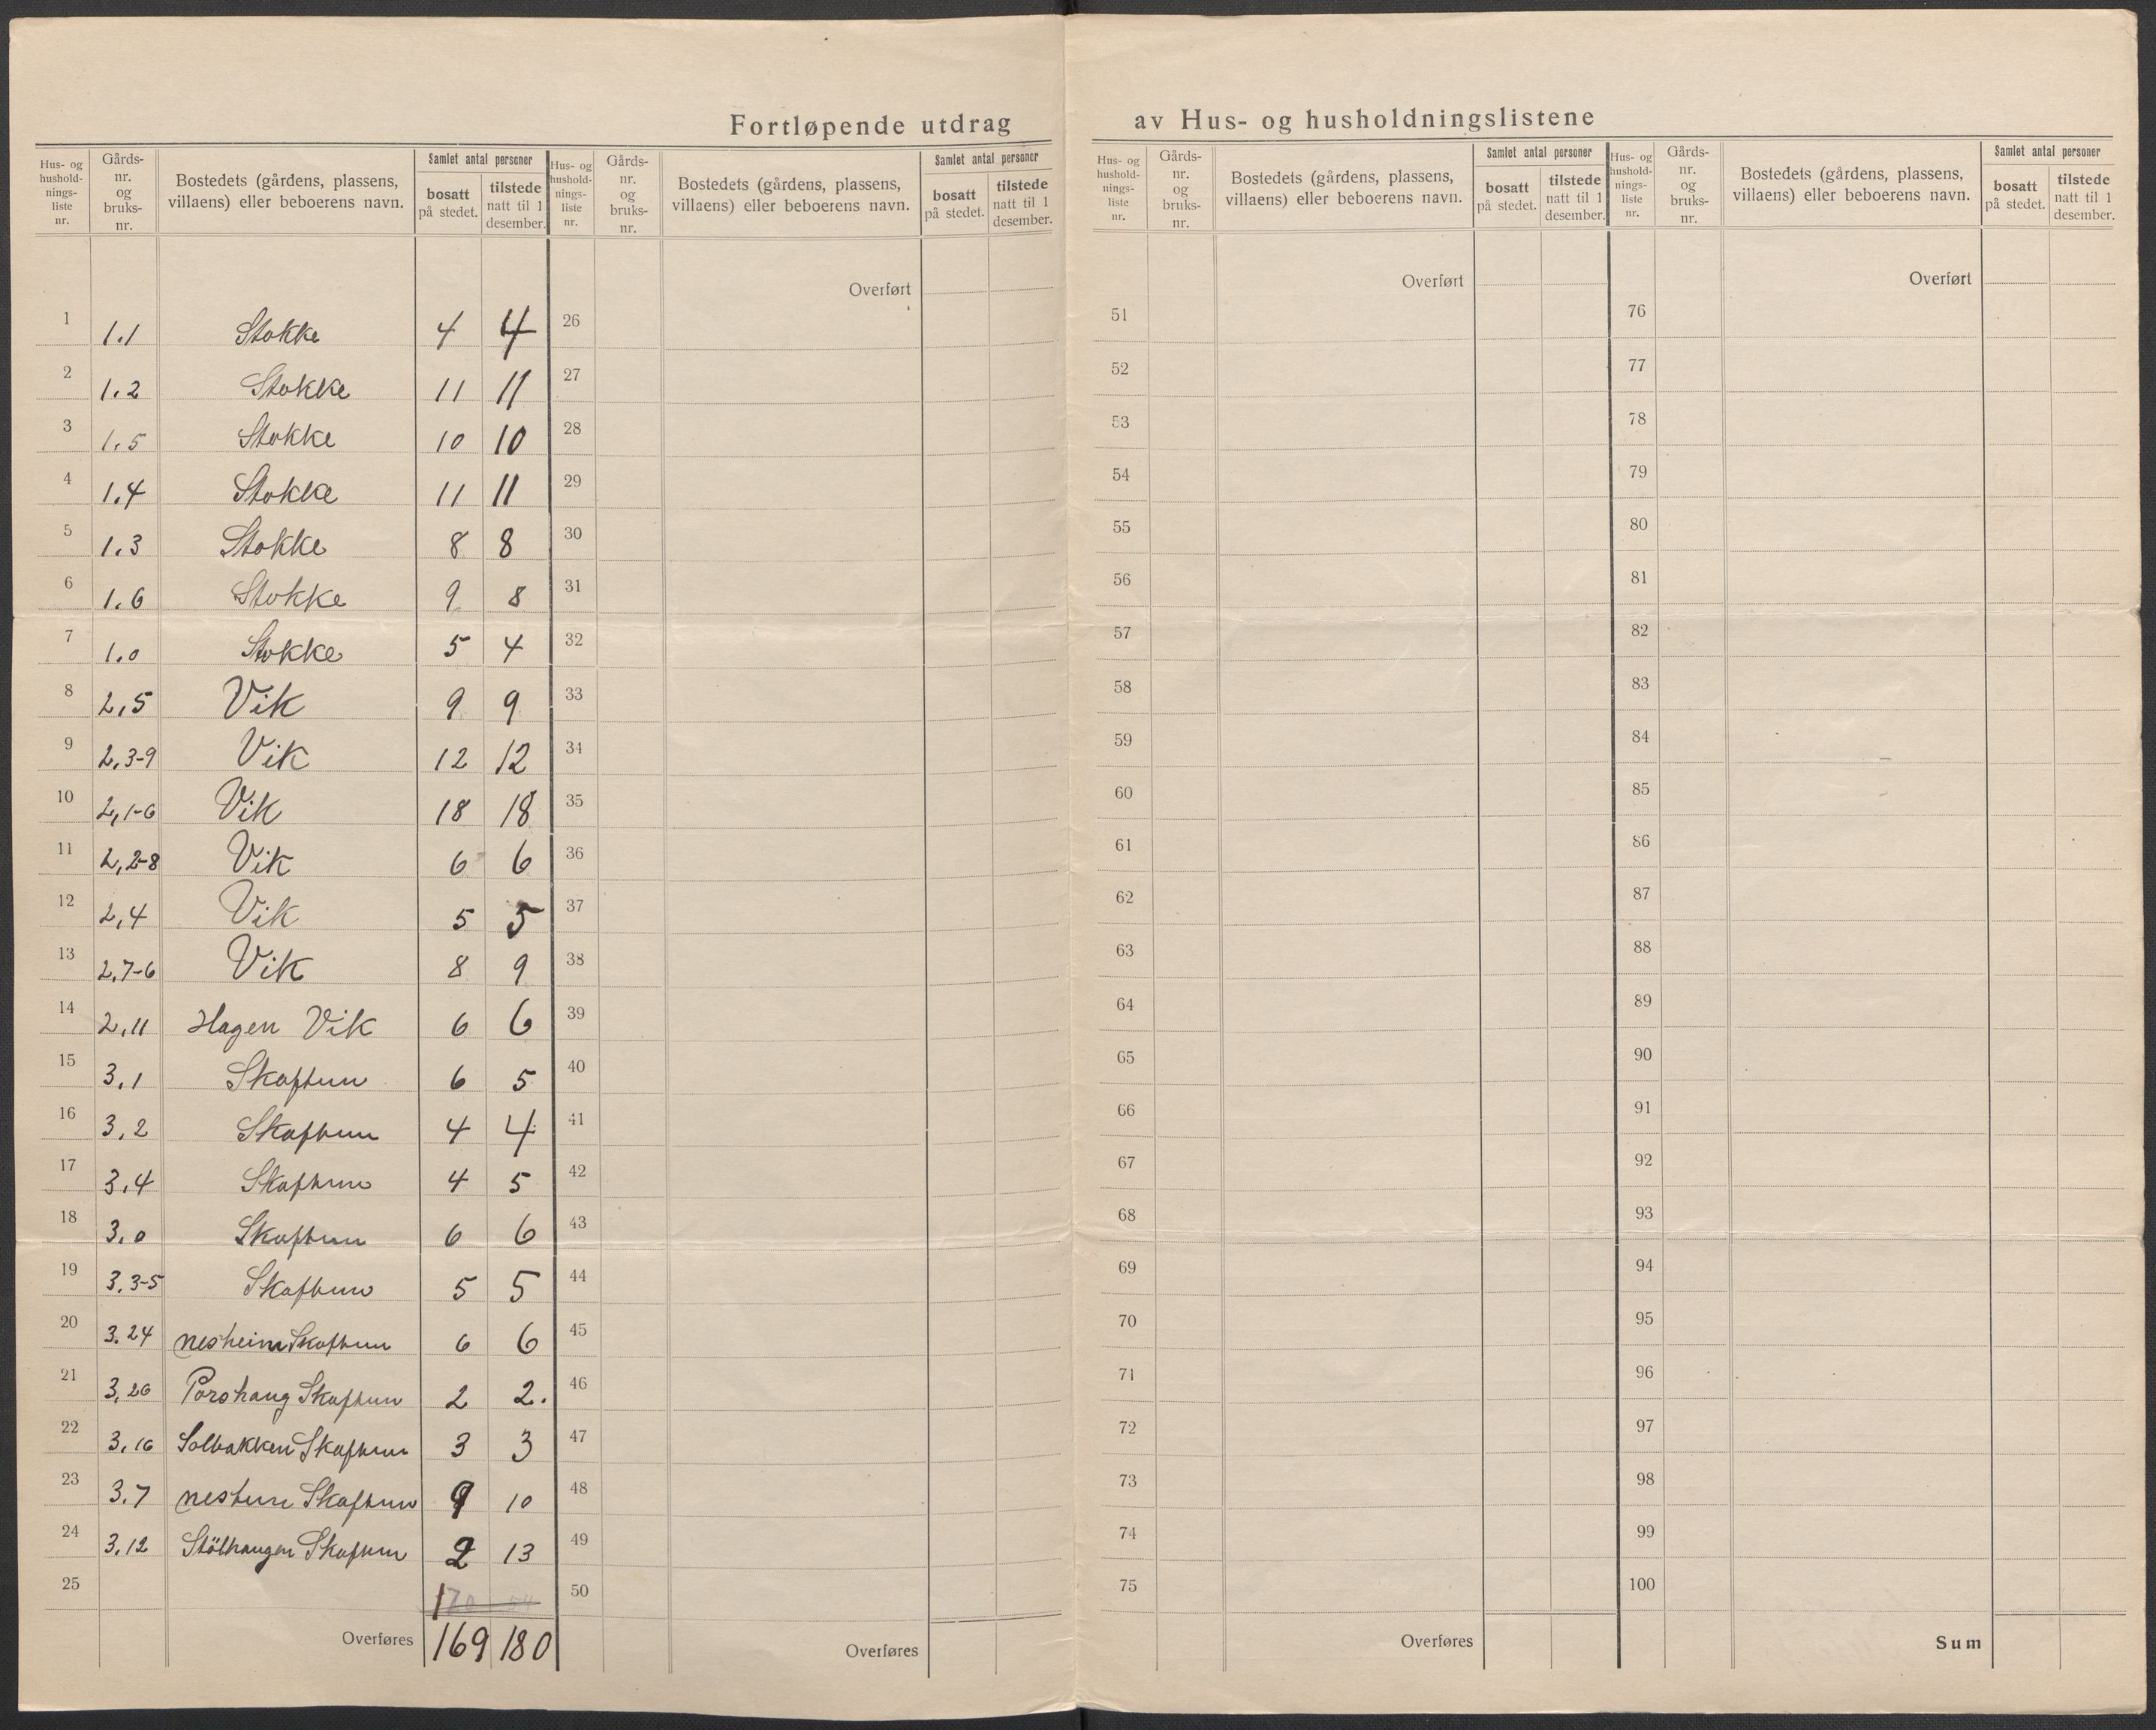 Fortløpende utdrag av Hus- og husholdningslistene
Hus- og hushold- nings- liste nr. | Gårds- nr. og bruks- nr. | Bostedets (gårdens, plassens, villaens) eller beboerens navn. | Samlet antal personer | bosatt på stedet. | tilstede natt til 1 desember.
1 1.1 Stokke 4 4
2 1.2 Stokke 11 11
3 1.5 Stokke 10 10
4 1.4 Stokke 11 11
5 1.3 Stokke 8 8
6 1.6 Stokke 9 8
7 1.0 Stokke 5 4
8 2,5 Vik 9 9
9 2,3-9 Vik 12 12
10 2,1-6 Vik 18 18
11 2,2-8 Vik 6 6
12 2,4 Vik 5 5
13 2,7-6 Vik 8 9
14 2,11 Hagen Vik 6 6
15 3,1 Skaftun 6 5
16 3,2 Skaftun 4 4
17 3,4 Skaftun 4 5
18 3,0 Skaftun 6 6
19 3,3-5 Skaftun 5 5
20 3.24 Nesheim Skaftun 6 6
21 3,26 Porshaug Skaftun 2 2.
22 3,16 Solbakken Skaftun 3 3
23 3.7 Nestun Skaftun 9 10
24 3.12 Stölhaugen Skaftun 2 13
25
Overføres 169 180
Hus- og hushold- nings- liste nr. | Gårds- nr. og bruks- nr. | Bostedets (gårdens, plassens, villaens) eller beboerens navn. | Samlet antal personer | bosatt på stedet. | tilstede natt til 1 desember.
Overført
26
27
28
29
30
31
32
33
34
35
36
37
38
39
40
41
42
43
44
45
46
47
48
49
50
Overføres
Hus- og hushold- nings- liste nr. | Gårds- nr. og bruks- nr. | Bostedets (gårdens, plassens, villaens) eller beboerens navn. | Samlet antal personer | bosatt på stedet. | tilstede natt til 1 desember.
Overført
51
52
53
54
55
56
57
58
59
60
61
62
63
64
65
66
67
68
69
70
71
72
73
74
75
Overføres
Hus- og hushold- nings- liste nr. | Gårds- nr. og bruks- nr. | Bostedets (gårdens, plassens, villaens) eller beboerens navn. | Samlet antal personer | bosatt på stedet. | tilstede natt til 1 desember.
Overført
76
77
78
79
80
81
82
83
84
85
86
87
88
89
90
91
92
93
94
95
96
97
98
99
100
Sum